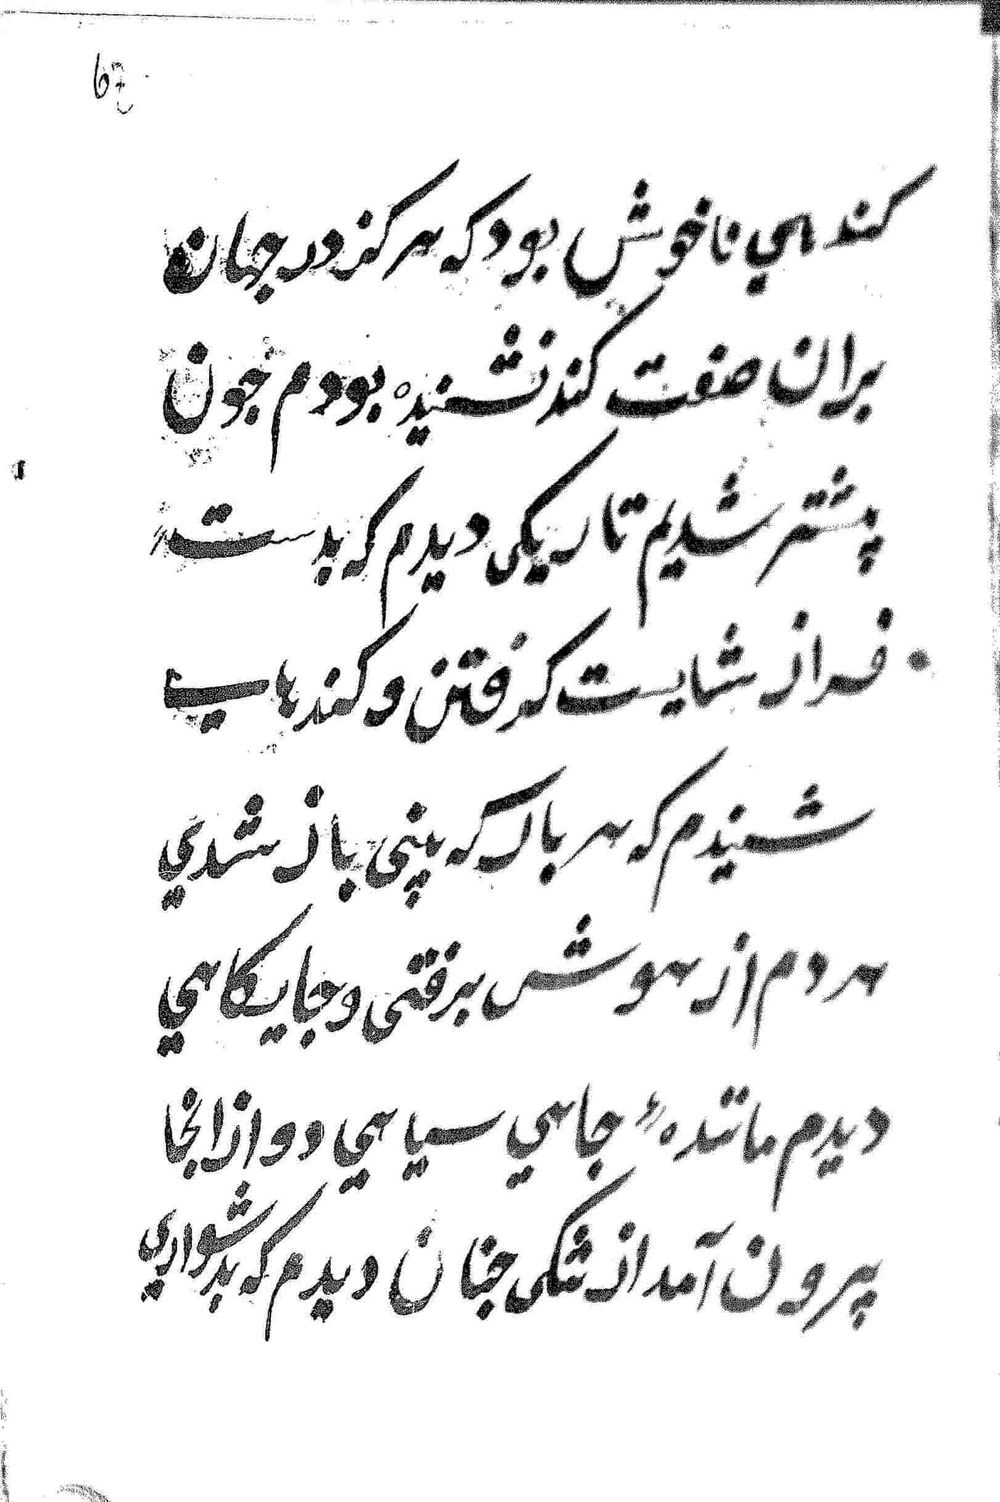 67
کندهي ناخوش بود که هرکز در جهان
بران صفت کند نشنیده بودم جون
پیشتر شدیم تاریکی دیدم که بدست
فراز شایست کرفتن و کندهایي
شنیدم که هر بار که بینی باز شدي
مردم از هوش برفتی و جایکاهي
دیدم مانندهٔ جاهي سیاهي دو از انجا
بیرون آمد از تنکی جنان دیدم که بدشواري